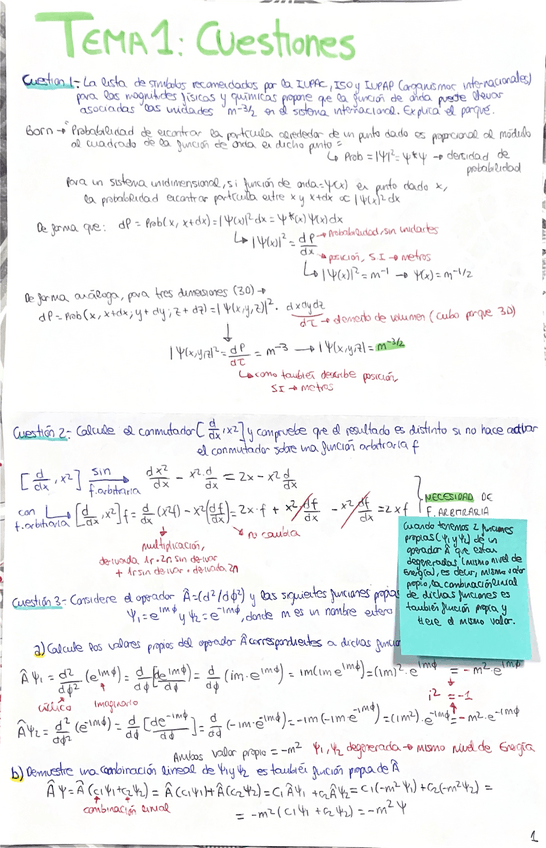 TEMA 1: Cuestiones
Cuestión 1:- La lista de símbolos recomendados por la IUPAC, ISO y IUPAP (organismos internacionales)
para las magnitudes físicas y químicas propone que la función de onda puede llevar
asociadas las unidades m^-3/2 en el sistema internacional. Explica el porqué.
Born → Probabilidad de encontrar la partícula alrededor de un punto dado es proporcional al módulo
al cuadrado de la función de onda en dicho punto =
↳ Prob = |Ψ|² = Ψ*Ψ → densidad de
probabilidad
Para un sistema unidimensional, si función de onda = Ψ(x) en punto dado x,
la probabilidad encontrar partícula entre x y x+dx ∝ |Ψ(x)|² dx
De forma que: dP = Prob(x, x+dx) = |Ψ(x)|² dx = Ψ*(x) Ψ(x) dx
↳ |Ψ(x)|² = dP/dx → Probabilidad, sin unidades
→ posición, S.I → metros
↳ |Ψ(x)|² = m^-1 → Ψ(x) = m^-1/2
De forma análoga, para tres dimensiones (3D) →
dP = Prob(x, x+dx; y+dy; z+dz) = |Ψ(x,y,z)|² · dxdydz
dτ → elemento de volumen (cubo porque 3D)
|Ψ(x,y,z)|² = dP/dτ = m^-3 → |Ψ(x,y,z)| = m^-3/2
↳ como también describe posición,
S.I → metros
Cuestión 2:- Calcule el conmutador [d/dx, x²] y compruebe que el resultado es distinto si no hace actuar
el conmutador sobre una función arbitraria f
[d/dx, x²] sin f.arbitraria → dx²/dx - x² · d/dx = 2x - x² d/dx
con f.arbitraria → [d/dx, x²] f = d/dx (x²f) - x² (df/dx) = 2x·f + x² df/dx - x² df/dx = 2xf
NECESIDAD DE
F. ARBITRARIA
multiplicación,
derivada 1ª · 2ª sin derivar
+ 1ª sin derivar · derivada 2ª
no cambia
Cuando tenemos 2 funciones
propias (Ψ1 y Ψ2) de un
operador Â que están
degeneradas (mismo nivel de
Energía), es decir, mismo valor
propio, la combinación lineal
de dichas funciones es
también función propia y
tiene el mismo valor.
Cuestión 3:- Considere el operador Â=(d²/dϕ²) y las siguientes funciones propias
Ψ1 = e^imϕ y Ψ2 = e^-imϕ, donde m es un nombre entero
a) Calcule los valores propios del operador Â correspondientes a dichas
ÂΨ1 = d²/dϕ² (e^imϕ) = d/dϕ [de^imϕ/dϕ] = d/dϕ (im · e^imϕ) = im(im e^imϕ) = (im)² · e^imϕ = -m² · e^imϕ
cíclico
imaginario
i² = -1
ÂΨ2 = d²/dϕ² (e^-imϕ) = d/dϕ [de^-imϕ/dϕ] = d/dϕ (-im · e^-imϕ) = -im(-im · e^-imϕ) = (im²) · e^-imϕ = -m² · e^-imϕ
Ambos valor propio = -m² Ψ1, Ψ2 degenerada → mismo nivel de Energía
b) Demuestre una combinación lineal de Ψ1 y Ψ2 es también función propia de Â
ÂΨ = Â(c1Ψ1+c2Ψ2) = Â(c1Ψ1) + Â(c2Ψ2) = c1ÂΨ1 + c2ÂΨ2 = c1(-m²Ψ1) + c2(-m²Ψ2) =
combinación lineal
= -m²(c1Ψ1 + c2Ψ2) = -m²Ψ
1